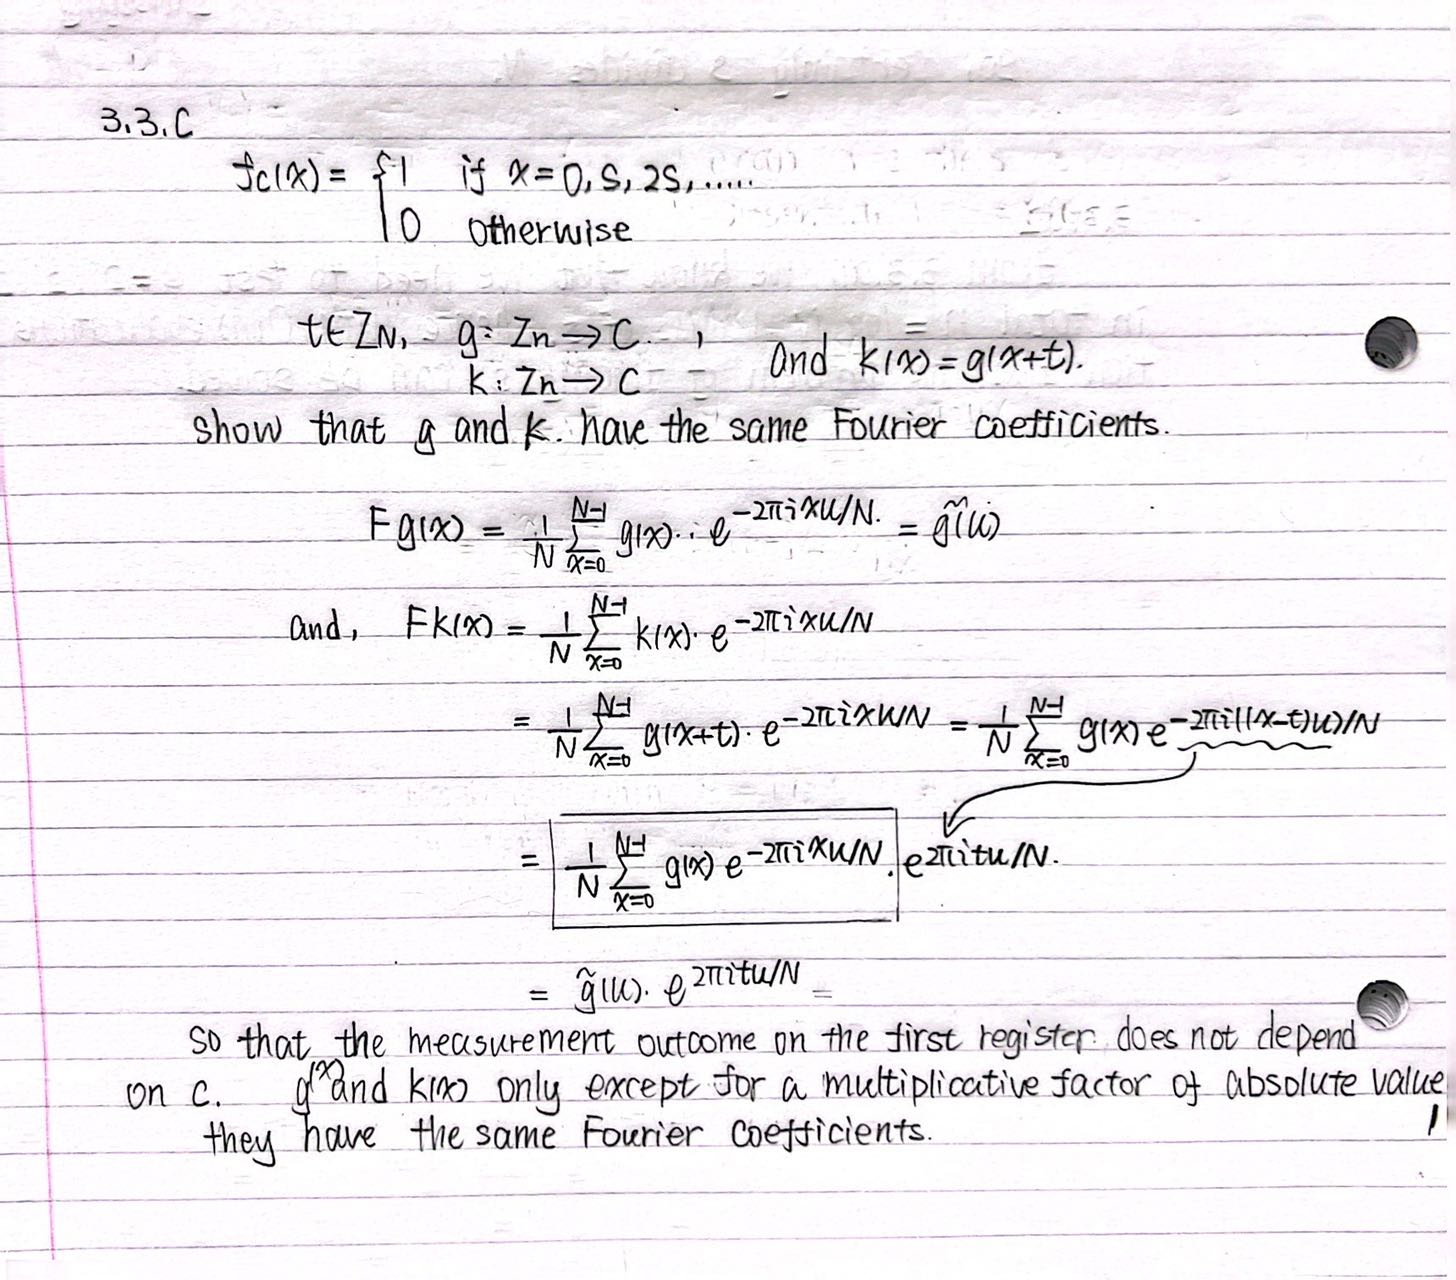 3.3.C
fc(x) = { 1 if x = 0, S, 2S, .....
0 otherwise
t∈ZN, g: Zn → C. , and k(x) = g(x+t).
k: Zn → C
show that g and k. have the same Fourier coefficients.
Fg(x) = 1/N ∑_{x=0}^{N-1} g(x)·· e^{-2πixu/N}. = g̃(u)
and, Fk(x) = 1/N ∑_{x=0}^{N-1} k(x)· e^{-2πixu/N}
= 1/N ∑_{x=0}^{N-1} g(x+t)· e^{-2πixu/N} = 1/N ∑_{x=0}^{N-1} g(x) e^{-2πi((x-t)u)/N}
= 1/N ∑_{x=0}^{N-1} g(x) e^{-2πixu/N}. e^{2πitu/N}.
= g̃(u). e^{2πitu/N}
So that the measurement outcome on the first register does not depend
on c. g(x) and k(x) only except for a multiplicative factor of absolute value 1
they have the same Fourier coefficients.